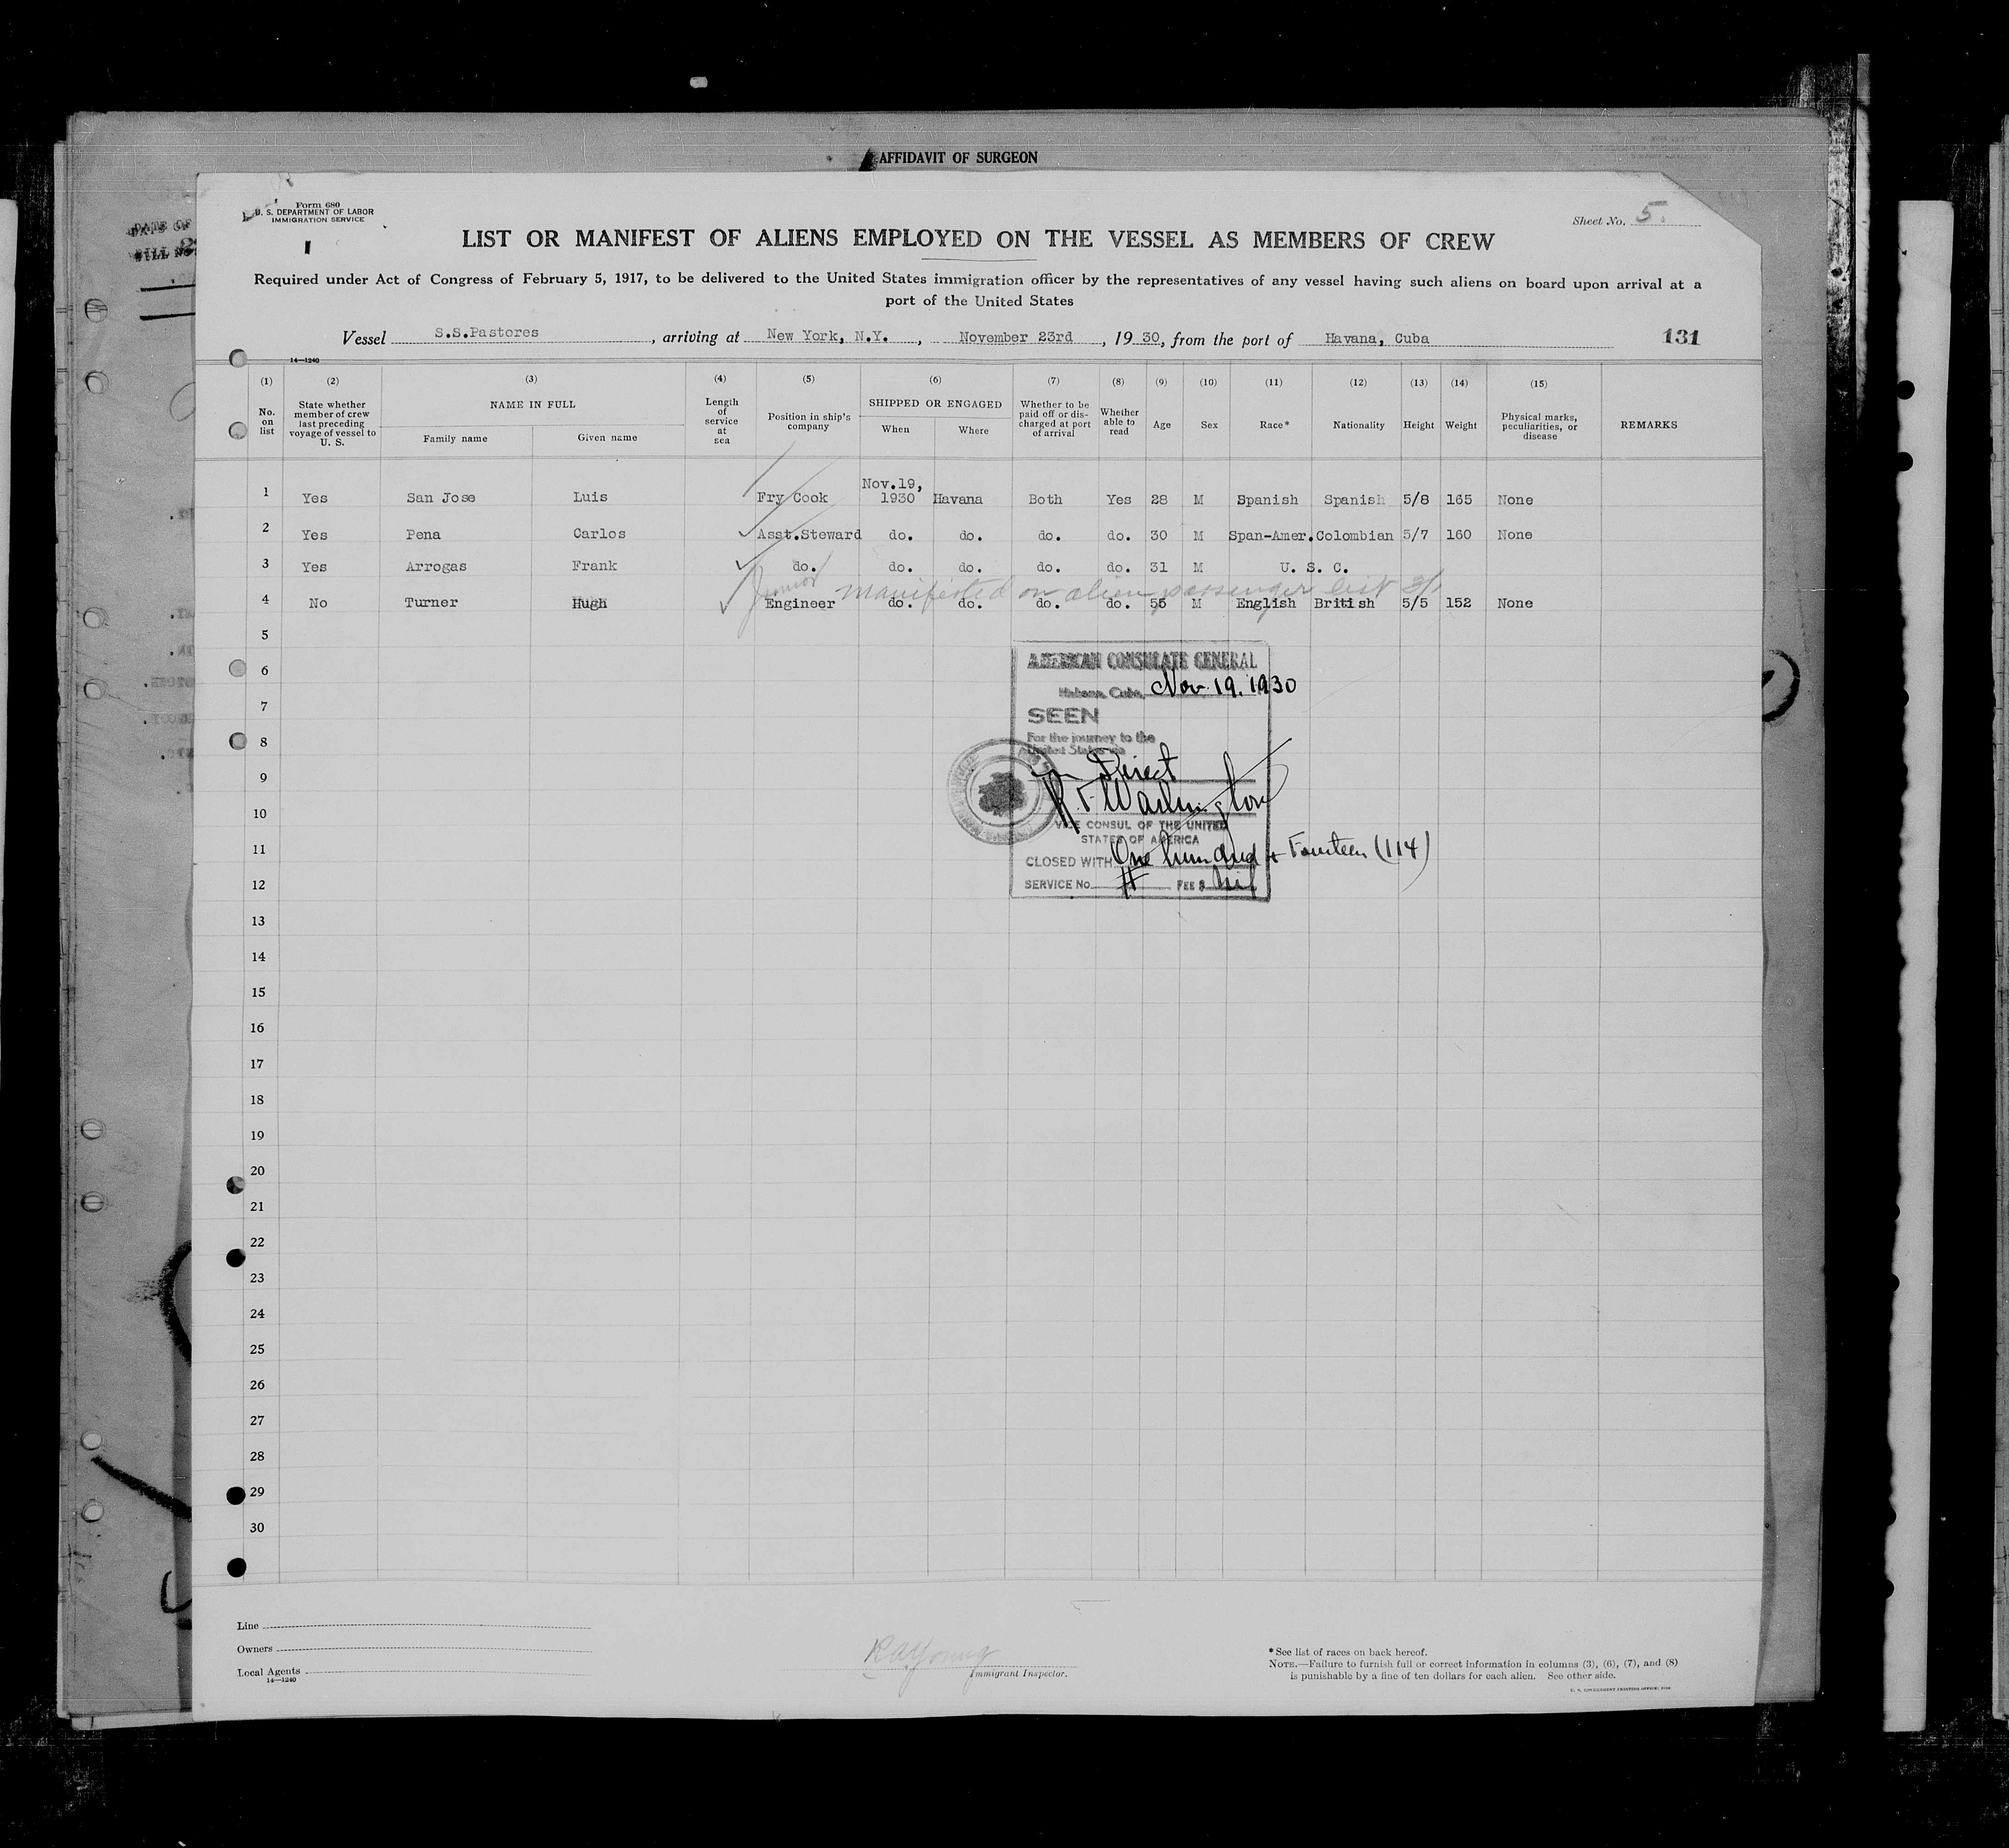 AFFIDAVIT OF SURGEON
Form 680
U. S. DEPARTMENT OF LABOR
IMMIGRATION SERVICE
Sheet No. 5.
LIST OR MANIFEST OF ALIENS EMPLOYED ON THE VESSEL AS MEMBERS OF CREW
Required under Act of Congress of February 5, 1917, to be delivered to the United States immigration officer by the representatives of any vessel having such aliens on board upon arrival at a
port of the United States
Vessel S.S.Pastores, arriving at New York, N.Y., November 23rd, 1930, from the port of Havana, Cuba 131
14—1240
(1) (2) (3) (4) (5) (6) (7) (8) (9) (10) (11) (12) (13) (14) (15)
No. on list
State whether member of crew last preceding voyage of vessel to U. S.
NAME IN FULL
Family name Given name
Length of service at sea
Position in ship's company
SHIPPED OR ENGAGED
When Where
Whether to be paid off or discharged at port of arrival
Whether able to read
Age Sex Race* Nationality Height Weight
Physical marks, peculiarities, or disease
REMARKS
1 Yes San Jose Luis Fry Cook Nov.19, 1930 Havana Both Yes 28 M Spanish Spanish 5/8 165 None
2 Yes Pena Carlos Asst.Steward do. do. do. do. 30 M Span-Amer. Colombian 5/7 160 None
3 Yes Arrogas Frank do. do. do. do. do. 31 M U. S. C.
Junior manifested on alien passenger list
4 No Turner Hugh Engineer do. do. do. do. 55 M English British 5/5 152 None
5
6
7
8
9
10
11
12
13
14
15
16
17
18
19
20
21
22
23
24
25
26
27
28
29
30
AMERICAN CONSULATE GENERAL
Habana, Cuba, Nov. 19, 1930
SEEN
For the journey to the
United States via
Direct
Washington
VICE CONSUL OF THE UNITED
STATES OF AMERICA
CLOSED WITH One hundred + Fourteen (114)
SERVICE No. # FEE $ Nil
Line
Owners
Local Agents
14—1240
R A Young
Immigrant Inspector.
*See list of races on back hereof.
NOTE.—Failure to furnish full or correct information in columns (3), (6), (7), and (8)
is punishable by a fine of ten dollars for each alien. See other side.